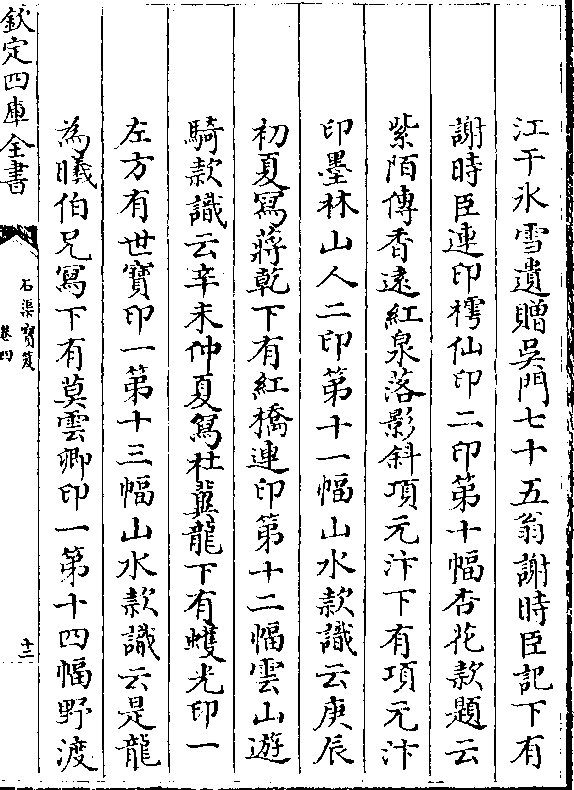 江干氷雪遺贈吳門七十五翁謝時臣記下有
謝時臣連印樗仙印二印第十幅杏花款題云
紫陌傳香遠紅泉落影斜項元汴下有項元汴
印墨林山人二印第十一幅山水款識云庚辰
初夏寫蔣乾下有紅橋連印第十二幅雲山遊
騎款識云辛未仲夏寫杜冀龍下有蠖光印一
左方有世寶印一第十三幅山水款識云是龍
為曦伯兄寫下有莫雲卿印一第十四幅野渡
欽定四庫全書
石渠寶笈
卷四
十二